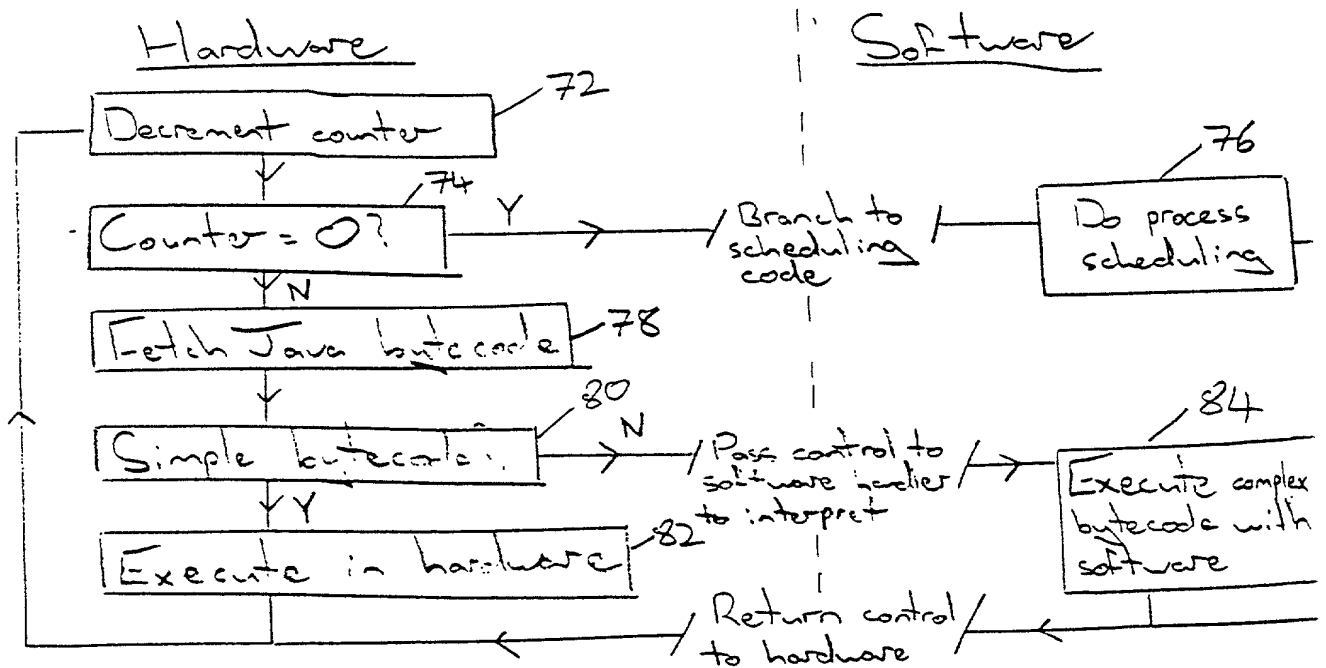 Hardware
Software
72
Decrement counter
76
74
Counter = 0?
Y
Branch to
scheduling
code
Do process
scheduling
N
78
Fetch Java bytecode
80
84
Simple bytecode?
N
Pass control to
software handler
to interpret
Execute complex
bytecode with
software
Y
82
Execute in hardware
Return control
to hardware